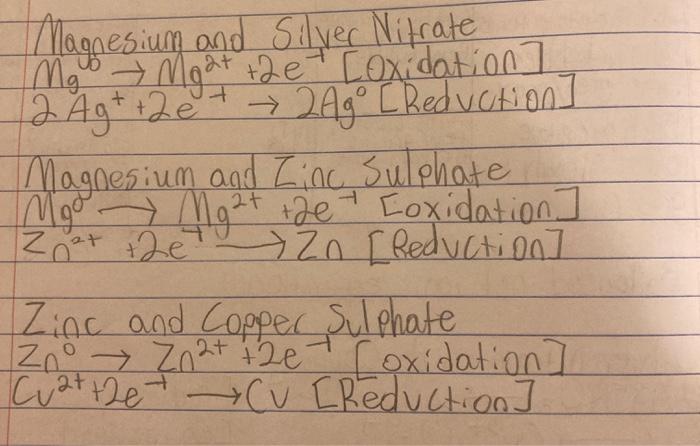 Magnesium and Silver Nitrate
Mg⁰ → Mg²⁺ +2e⁻¹ [Oxidation]
2Ag⁺ +2e⁻¹ → 2Ag⁰ [Reduction]
Magnesium and Zinc Sulphate
Mg⁰ → Mg²⁺ +2e⁻¹ [oxidation]
Zn²⁺ +2e⁻¹ → Zn [Reduction]
Zinc and Copper Sulphate
Zn⁰ → Zn²⁺ +2e⁻¹ [oxidation]
Cu²⁺+2e⁻¹ → Cu [Reduction]